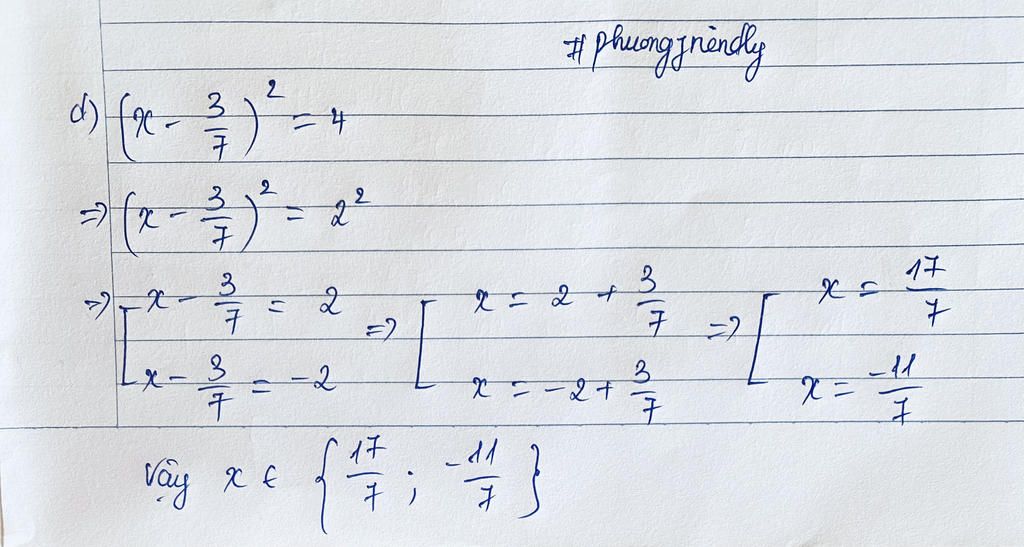 #phuongfriendly
d) (x - 3/7)² = 4
=> (x - 3/7)² = 2²
=> [ x - 3/7 = 2 => [ x = 2 + 3/7 => [ x = 17/7
x - 3/7 = -2 x = -2 + 3/7 x = -11/7
Vậy x ∈ {17/7 ; -11/7}